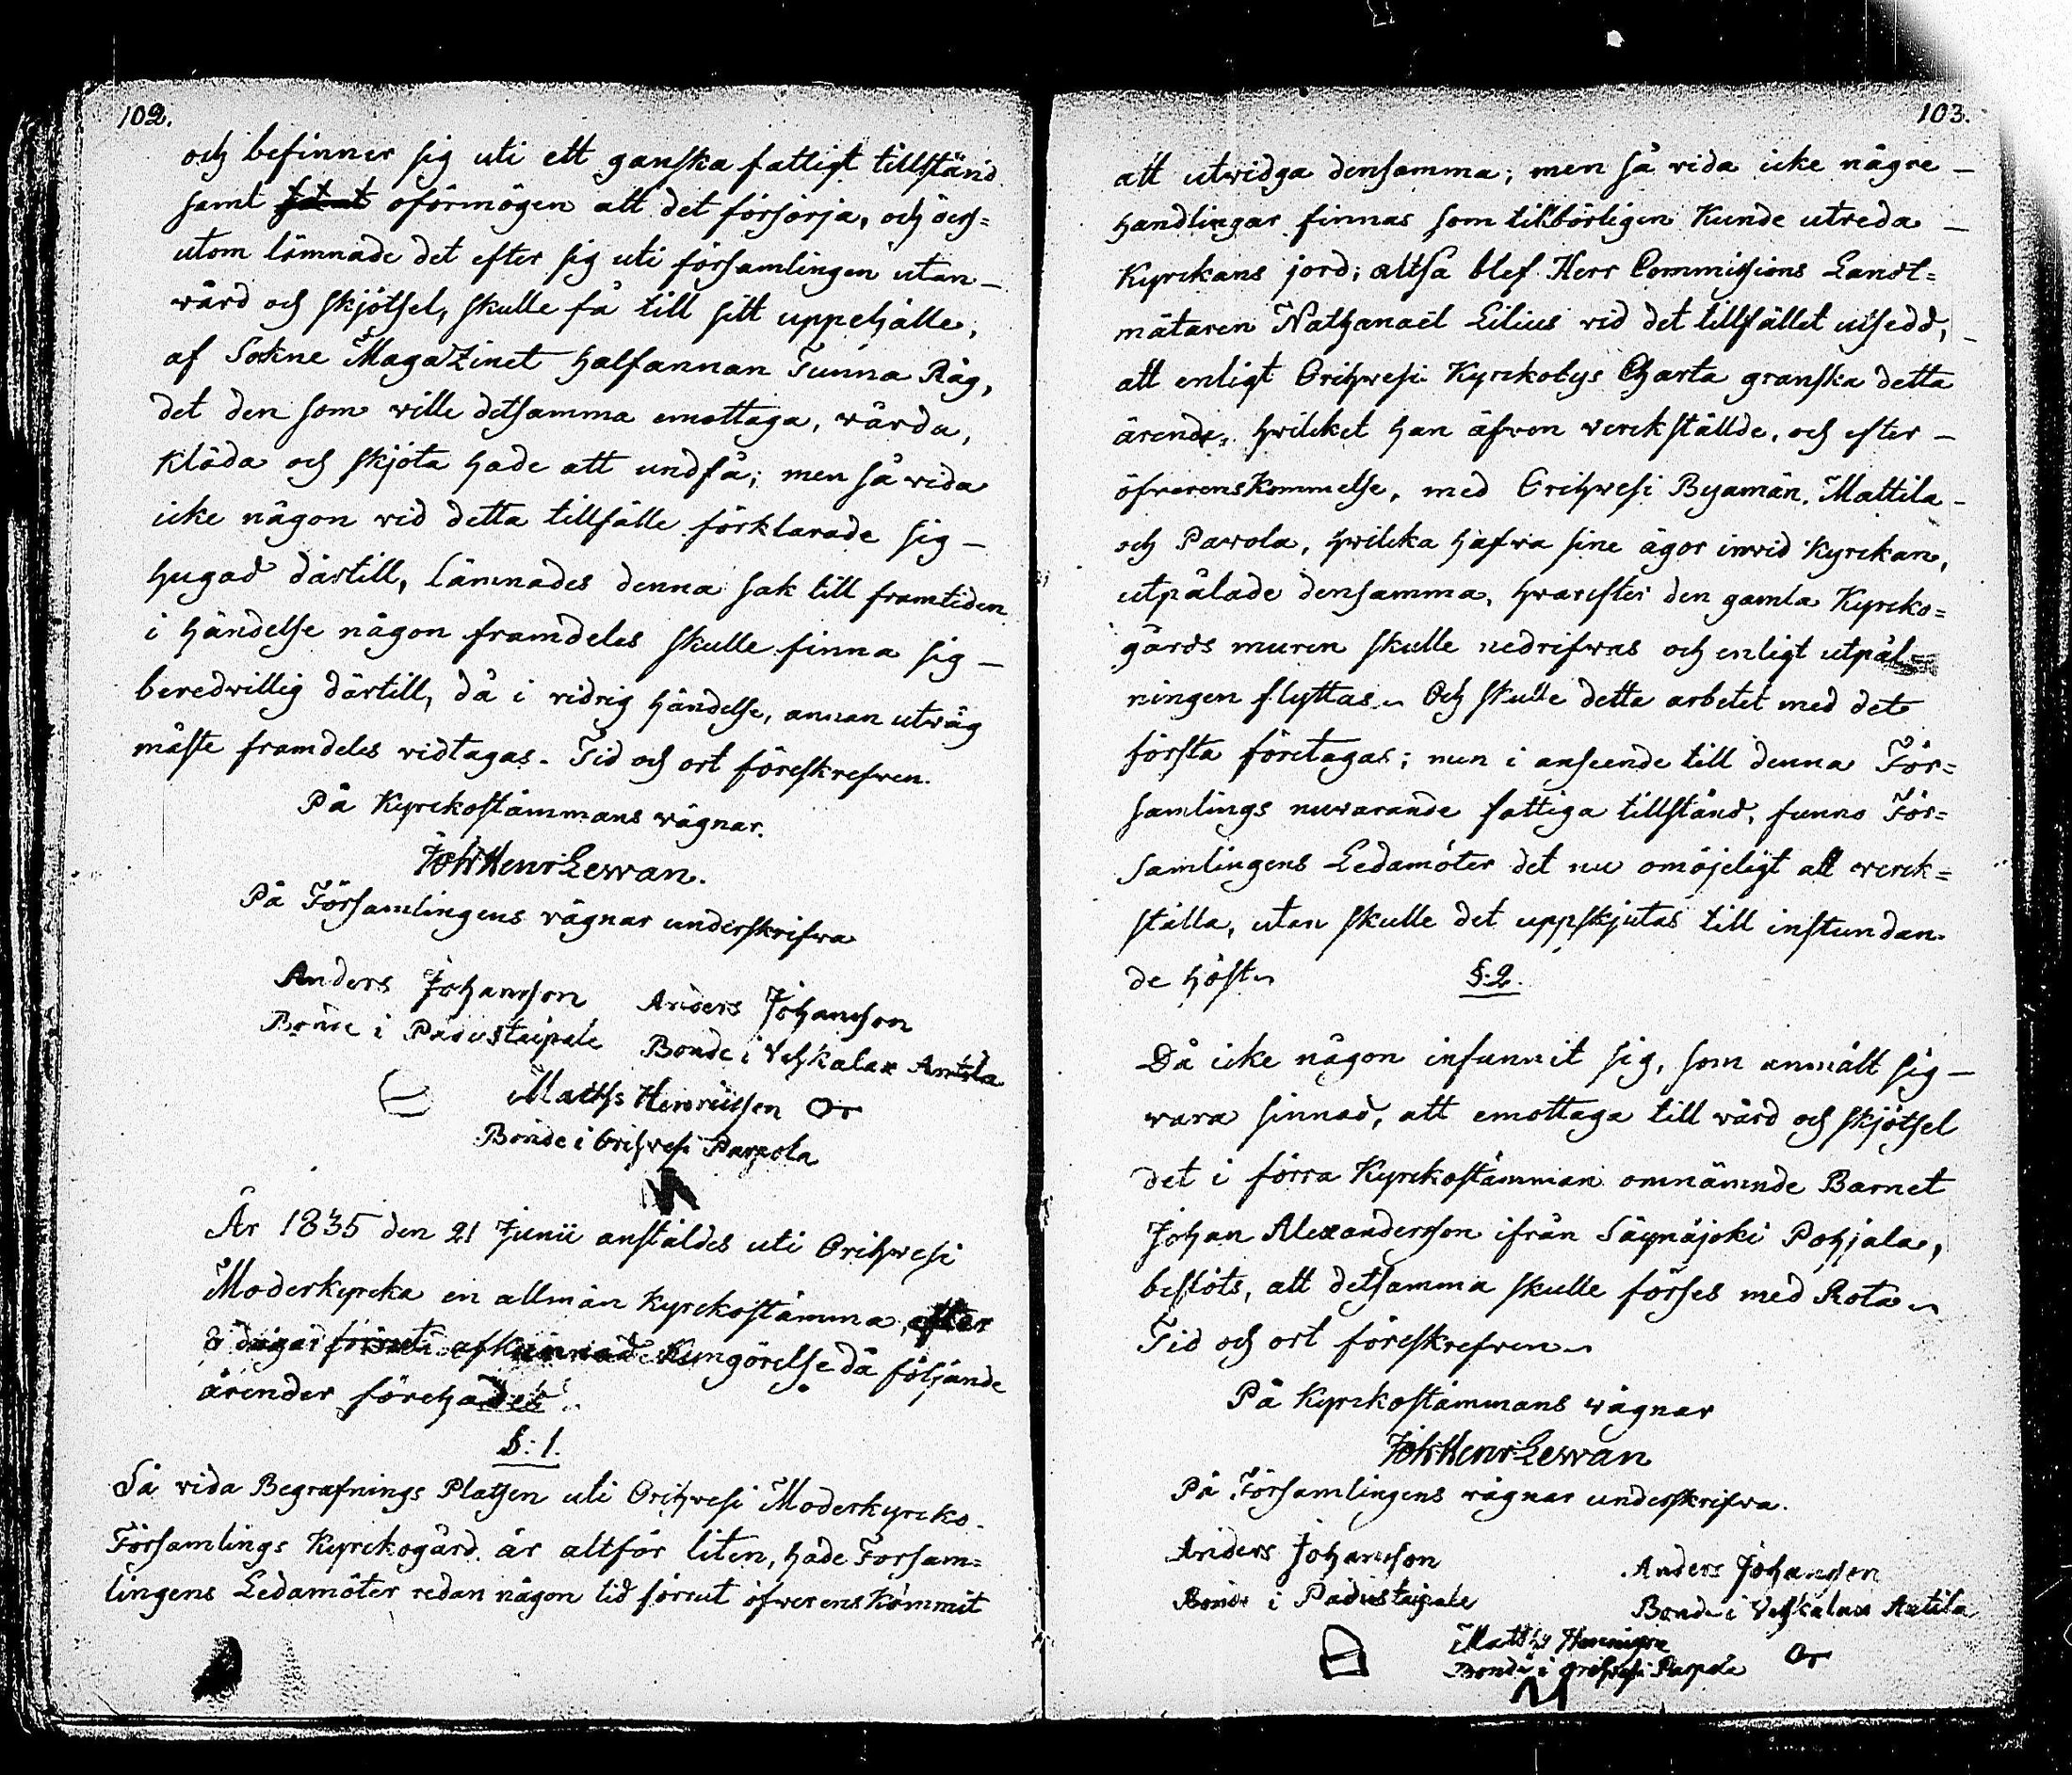 102.
och befinner sig uti ett ganska fattigt tillstånd
samt oförmögen att det försörja, och öess=
utom lämnade det efter sig uti församlingen utan —
wård och skjötsel, skulle få till sitt uppehälle,
af Sokne Magazinet halfannan Tunna Råg,
det den som wille detsamma emottaga, wårda,
kläda och skjöta hade att undfå; men så vida
icke någon vid detta tillfälle förklarade sig —
hugad därtill, lämnades denna sak till framtiden
i händelse någon framdeles skulle finna sig —
beredvillig därtill, då i vidrig händelse, annan utväg
måste framdeles vidtagas. Tid och ort föreskrefven.
På Kyrckostämmans vägnar.
Joh Henr Lewan.
På Församlingens vägnar underskrifva
Anders Johansson Anders Johansson
Bonde i Padustaipale Bonde i Vehkalax Antila
Matths Henricsson Or
Bonde i Orihvesi Parpola
År 1835 den 21 Junii anstäldes uti Orihwesi
Moderkyrcka en allmän Kyrckostämma, efter
8 dagar förut afkunnad Kungörelse då följande
ärender förehades.
§: 1.
Så vida Begrafnings Platsen uti Orihvesi Moderkyrcko-
Församlings Kyrckogård är altför liten, hade Forsam=
lingens Ledamöter redan någon tid förrut öfverenskommit
103.
att utvidga densamma; men så vida icke någre —
handlingar finnas som tillbörligen kunde utreda —
Kyrckans jord; altsa blef Herr Commissions Landt=
mätaren Nathanaël Lilius vid det tillfället utsedd, —
att enligt Orihvesi Kyrckobys Charta granska detta
ärende, hvilcket han äfven verckställde, och efter —
öfverenskommelse, med Orihvesi Byamän, Mattila —
och Pavola, hvilcka hafva sine ägor invid Kyrckan,
utpålade densamma, hvarefter den gamla Kyrcko=
gårds muren skulle nedrifwas och enligt utpål=
ningen flyttas. Och skulle detta arbetet med det
första företagas; men i anseende till denna För=
samlings nuvarande fattiga tillstånd, funno För=
samlingens Ledamöter det nu omöjeligt att verck=
ställa, utan skulle det uppskjutas till instundan
de höst.
§. 2.
Då icke någon infunnit sig, som anmält sig —
wara sinnad, att emottaga till wård och skjötsel
det i förra Kyrckostämman omnämnde Barnet
Johan Alexandersson ifrån Säynäjoki Pohjala,
beslöts, att detsamma skulle förses med Rota.
Tid och ort föreskrefven.
På Kyrckostämmans wägnar
Joh Henr Lewan
På Församlingens vägnar underskrifva.
Anders Johansson Anders Johansson
Bonde i Padustaipale Bonde i Vehkalax Antila
Matths Henricson
Bonde i Orihvesi Parpola Or